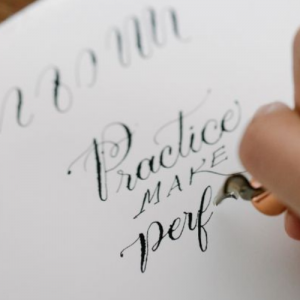 Practice
MAKE
perf